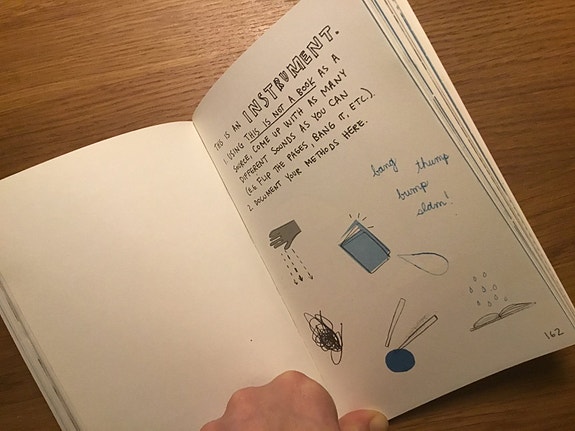 THIS IS AN INSTRUMENT.
1. USING THIS IS NOT A BOOK AS A
SOURCE, COME UP WITH AS MANY
DIFFERENT SOUNDS AS YOU CAN
(E.G. FLIP THE PAGES, BANG IT, ETC.).
2. DOCUMENT YOUR METHODS HERE.
bang thump
bump
slam!
162